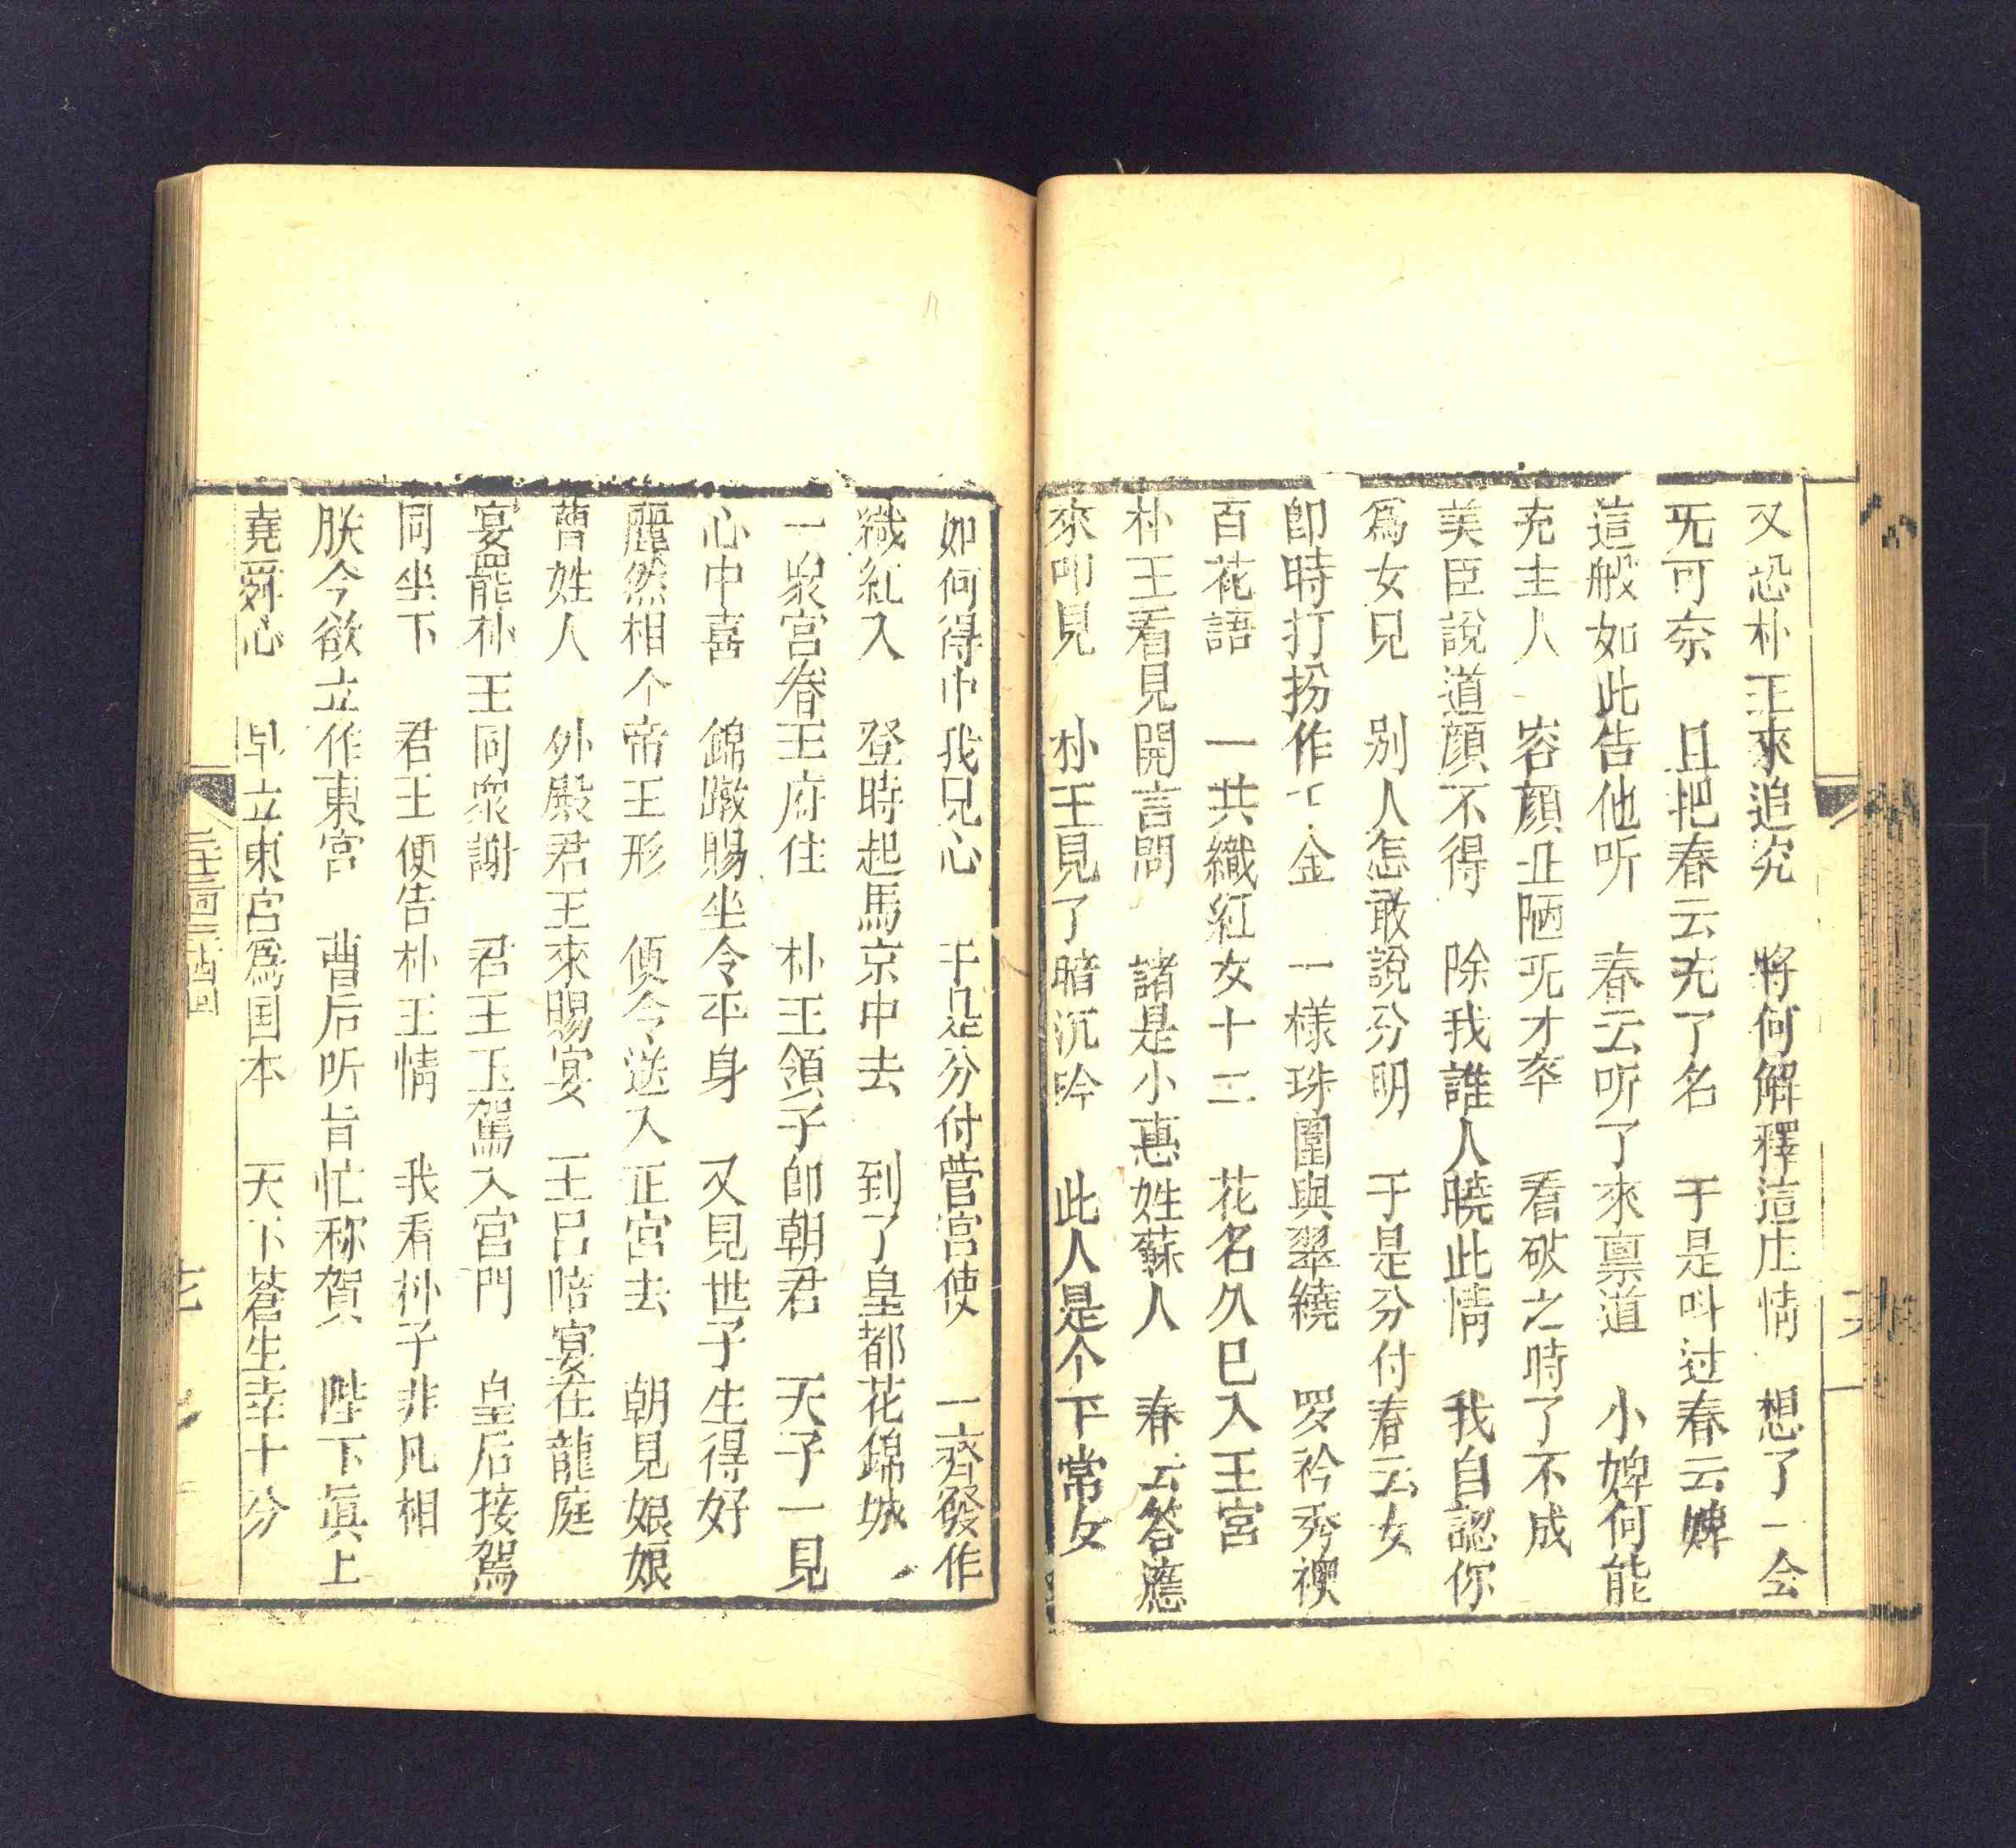 又恐朴王來追究　將何解釋這庄情　想了一会
旡可奈　且把春云充了名　于是呌过春云婢
這般如此告他听　春云听了來禀道　小婢何能
充主人　容顔丑陋旡才卒　看破之時了不成
美臣說道顔不得　除我誰人曉此情　我自認你
爲女兒　别人怎敢說分明　于是分付春云女
即時打扮作千金　一樣珠圍與翠繞　罗衿秀襖
百花語　一共織紅女十二　花名久已入王宮
朴王看見開言問　諸是小惠姓蘇人　春云答應
來叩見　朴王見了暗沉吟　此人是个下常女
如何得中我兄心　于是分付菅宮使　一齊發作
織紅入　登時起馬京中去　到了皇都花錦城
一衆宮眷王府住　朴王領子即朝君　天子一見
心中喜　錦墩賜坐令平身　又見世子生得好
麗然相个帝王形　便令送入正宮去　朝見娘娘
曹姓人　外殿君王來賜宴　王呂陪宴在龍庭
宴罷朴王同衆謝　君王玉駕入宮門　皇后接駕
同坐下　君王便告朴王情　我看朴子非凡相
朕今欲立作東宮　曹后听旨忙称賀　陛下眞上
堯舜心　早立東宮爲国本　天下蒼生幸十分